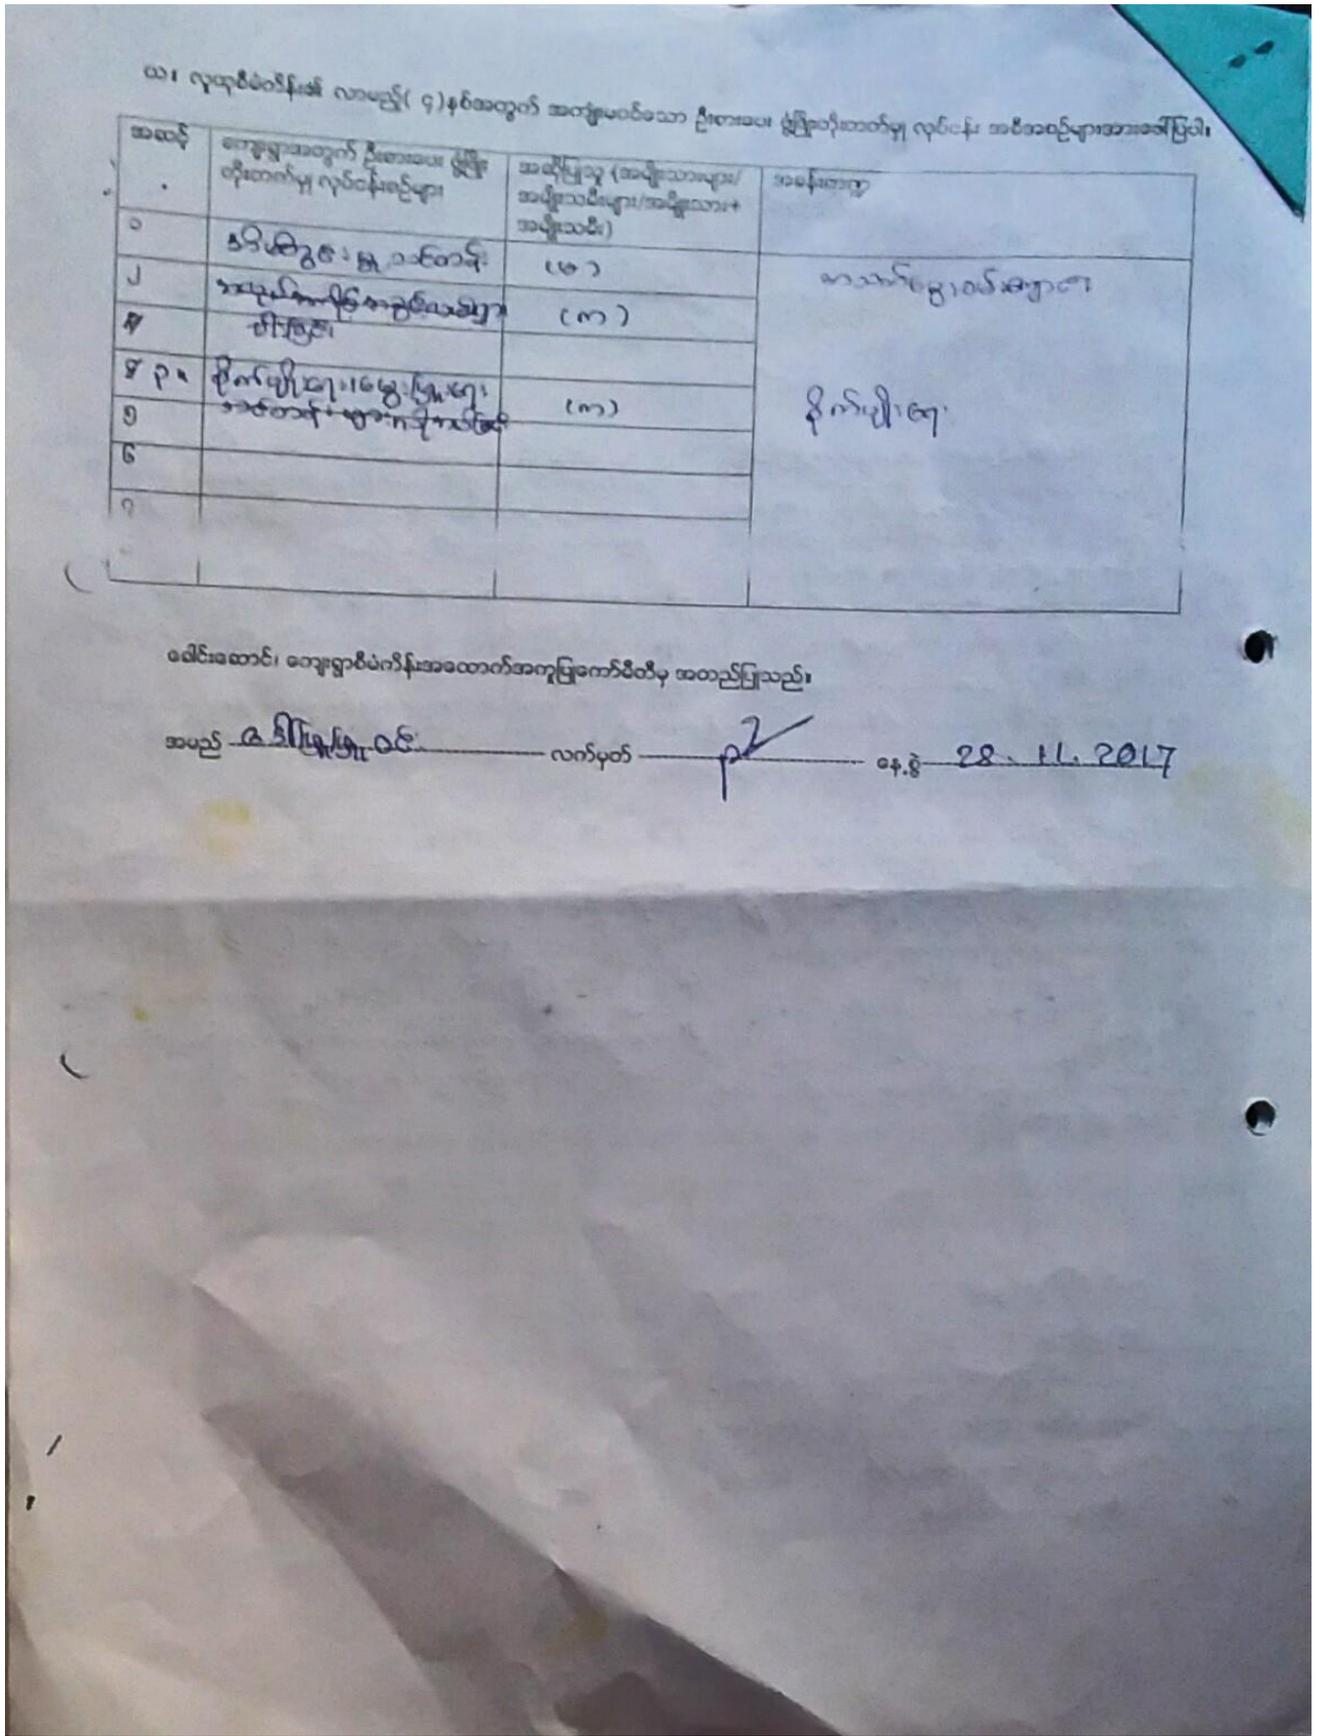 ဃ။ လူထုစီမံကိန်း၏ လာမည့်( ၄)နှစ်အတွက် အကျုံးမဝင်သော ဦးစားပေး ဖွံ့ဖြိုးတိုးတက်မှု လုပ်ငန်း အစီအစဉ်များအားဖော်ပြပါ။
အဆင့်
ကျေးရွာအတွက် ဦးစားပေး ဖွံ့ဖြိုး
တိုးတက်မှု လုပ်ငန်းစဉ်များ
အဆိုပြုသူ (အမျိုးသားများ/
အမျိုးသမီးများ/အမျိုးသား+
အမျိုးသမီး)
အခန်းကဏ္ဍ
၁
သင်တန်း
(မ)
၂
(က)
၃
၄ ၃။
စိုက်ပျိုးရေး၊မွေးမြူရေး
(က)
စိုက်ပျိုးရေး
၅
၆
၇
ခေါင်းဆောင်၊ ကျေးရွာစီမံကိန်းအထောက်အကူပြုကော်မီတီမှ အတည်ပြုသည်။
အမည် ဒေါ်ဖြူဖြူဝင်း လက်မှတ် နေ့စွဲ 28. 11. 2017